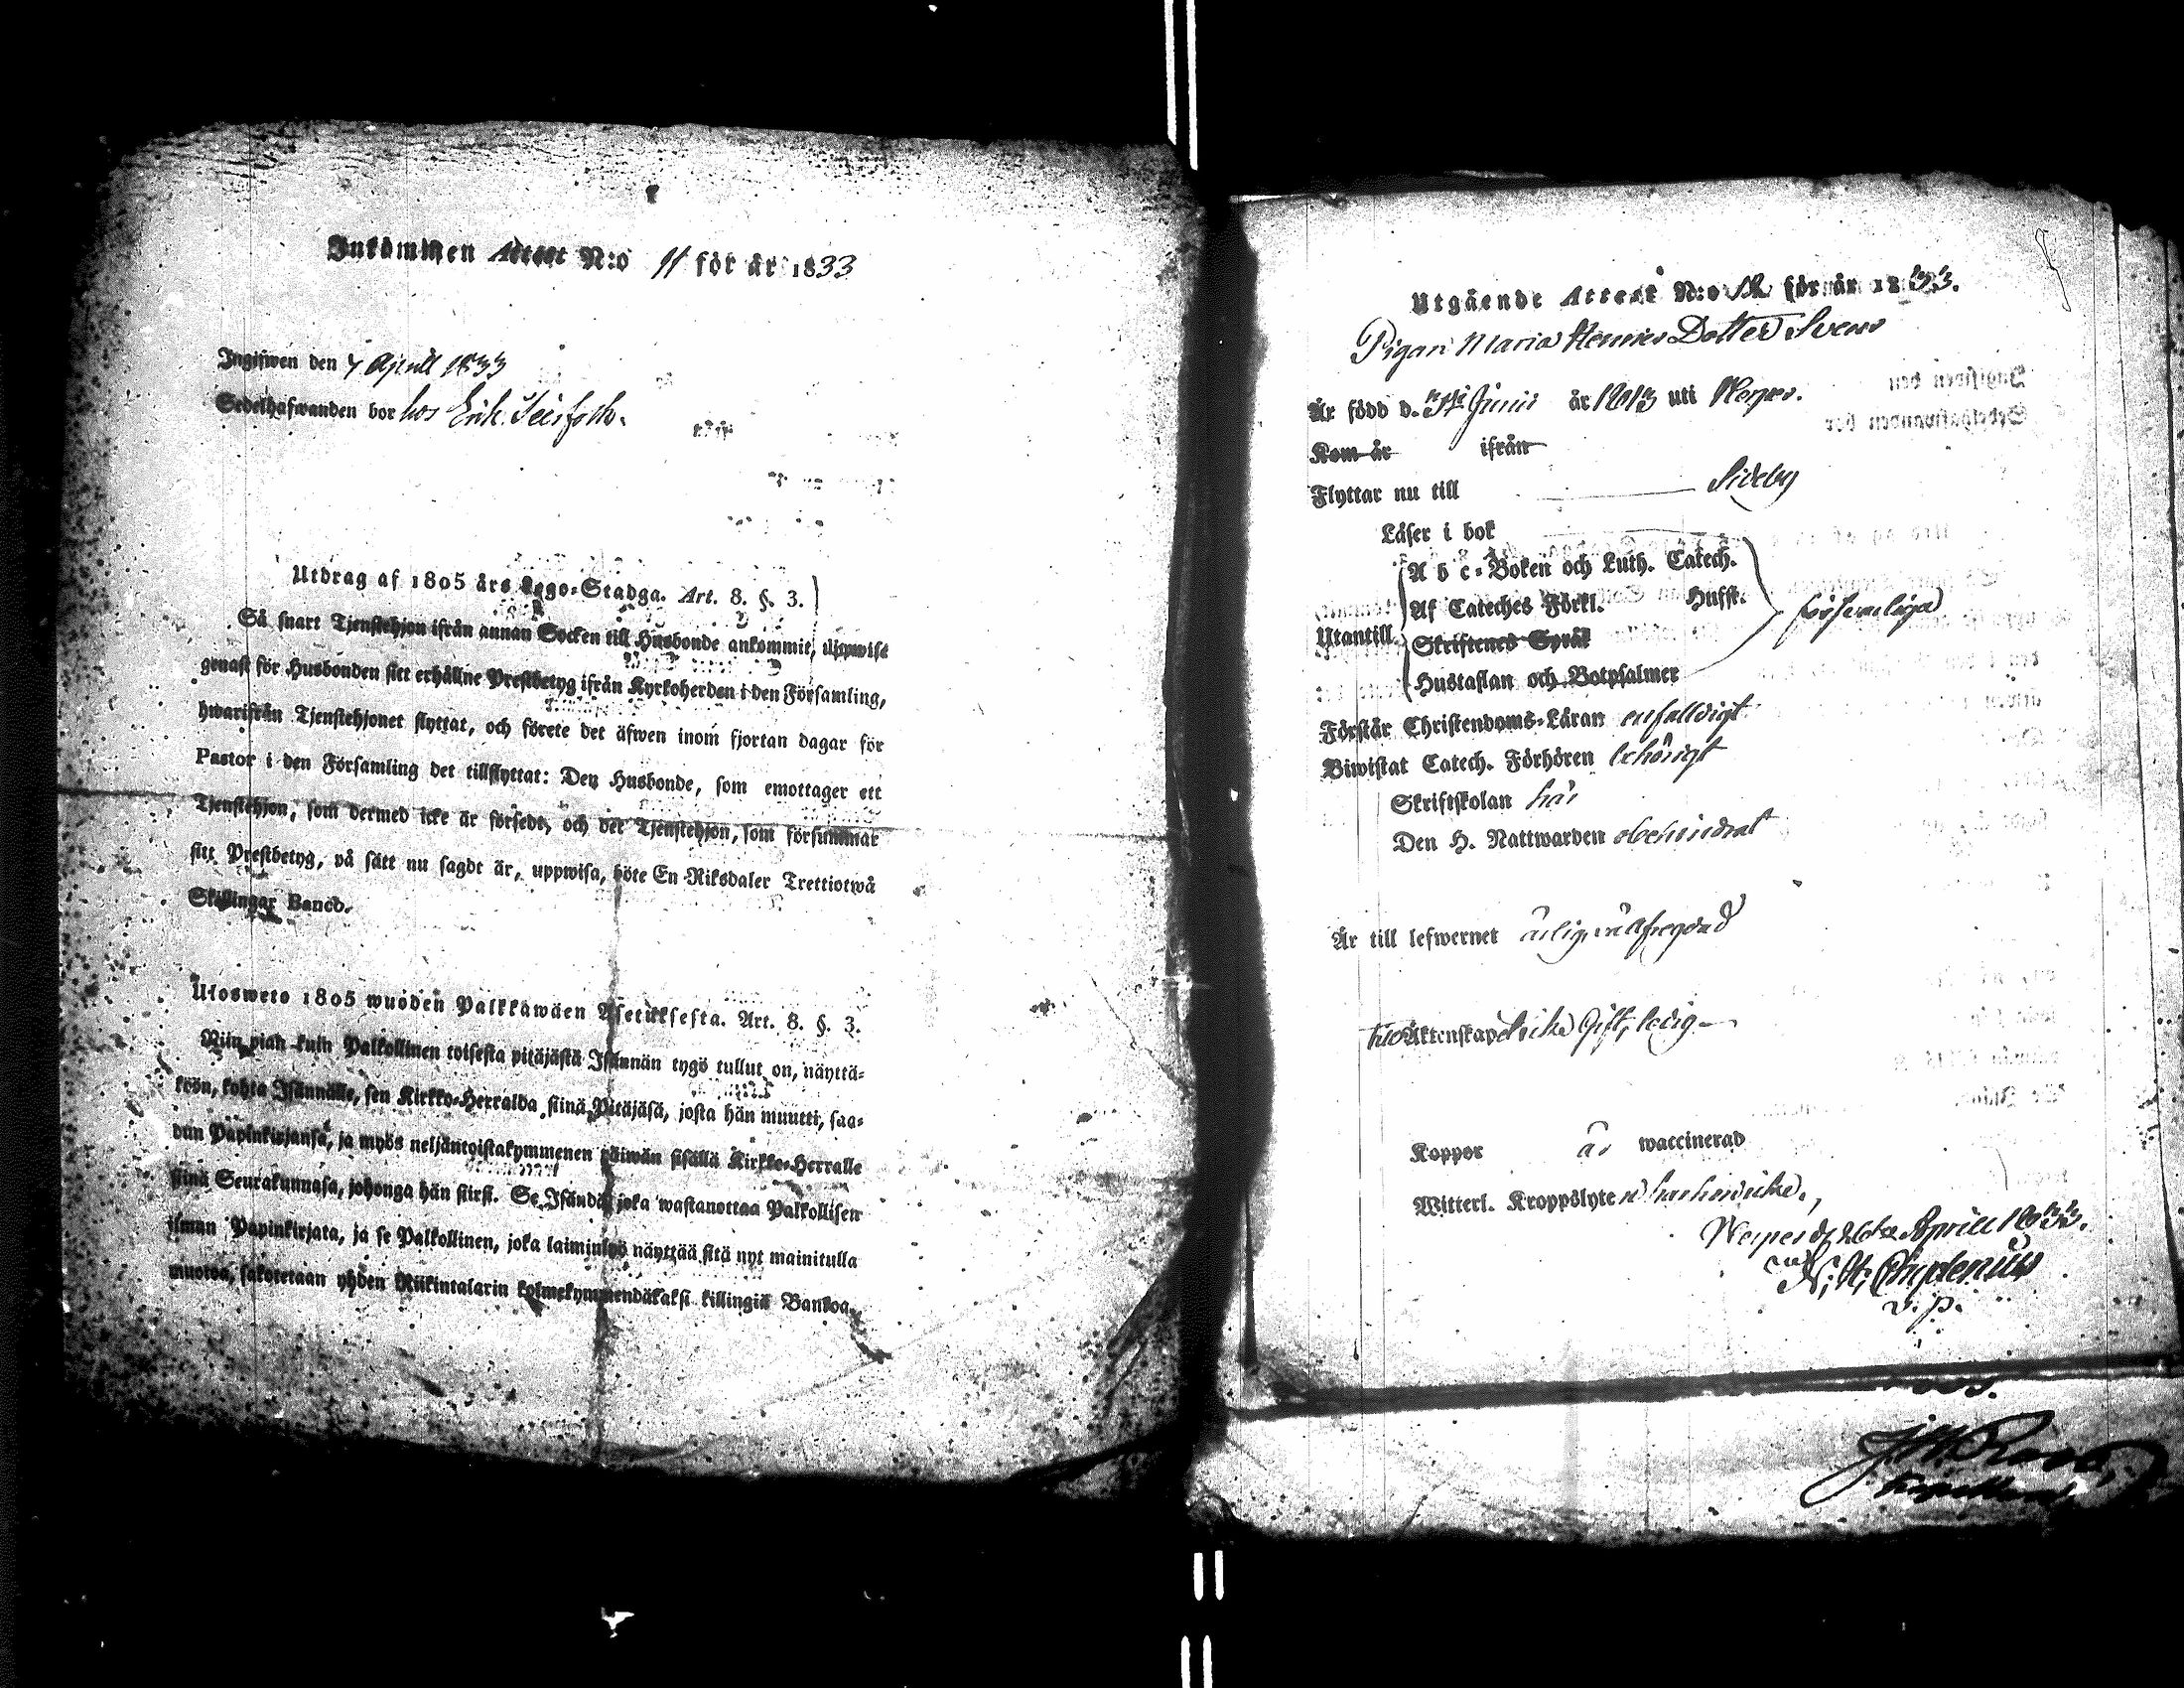 Inkommen Attest N:o 11 för år 1833
Ingifwen den 7 April 1833
Sedelhafwanden bor hos Erik
Utdrag af 1805 års Lego-Stadga. Art. 8. §. 3.
Så snart Tjenstehjon ifrån annan Socken till Husbonde ankommit, uppwise
genast för Husbonden sitt erhållne Prestbetyg ifrån Kyrkoherden i den Församling,
hwarifrån Tjenstehjonet flyttat, och förete det äfwen inom fjortan dagar för
Pastor i den Församling det tillflyttat: Den Husbonde, som emottager ett
Tjenstehjon, som dermed icke är försedt, och det Tjenstehjon, som försummar
sitt Prestbetyg, på sätt nu sagdt är, uppwisa, böte En Riksdaler Trettiotwå
Skillingar Banco.
Ulosweto 1805 wuoden Palkkawäen Asetuksesta. Art. 8. §. 3.
Niin pian kuin Palkollinen toisesta pitäjästä Isännän tygö tullut on, näyttä-
kön, kohta Isännälle, sen Kirkko-Herralda siinä Pitäjäsä, josta hän muutti, saa-
dun Papinkirjansa, ja myös neljäntoistakymmenen päiwän sisällä Kirkko-Herralle
siinä Seurakunnasa, johonga hän siirsi. Se Isändä, joka wastanottaa Palkollisen
ilman Papinkirjata, ja se Palkollinen, joka laiminlyö näyttää sitä nyt mainitulla
muotoa, sakotetaan yhden Riikintalarin kolmekymmendäkaksi killingiä Bankoa.
Utgående Attest N:o 12 för år 1833.
Pigan Maria Henrics Dotter Svens
Är född d. 3 Junii år 1813 uti Nerpes.
Kom år ifrån
Flyttar nu till Sideby
Läser i bok
A b c-Boken och Luth. Catech.
Af Cateches Förkl. Hufst.
Utantill Skriftenes Språk försvarliga
Hustaflan och Botpsalmer
Förstår Christendoms-Läran enfalldigt
Biwistat Catech. Förhören behörigt
Skriftskolan här
Den H. Nattwarden obehindrat
Är till lefwernet ärlig, wälfregdad
Till Äktenskap icke Gift, ledig
Koppor är waccinerad
Witterl. Kroppslyte har hon icke.
Nerpes d. 26te Aprill 1833.
N: H: Chydenius
v. p.